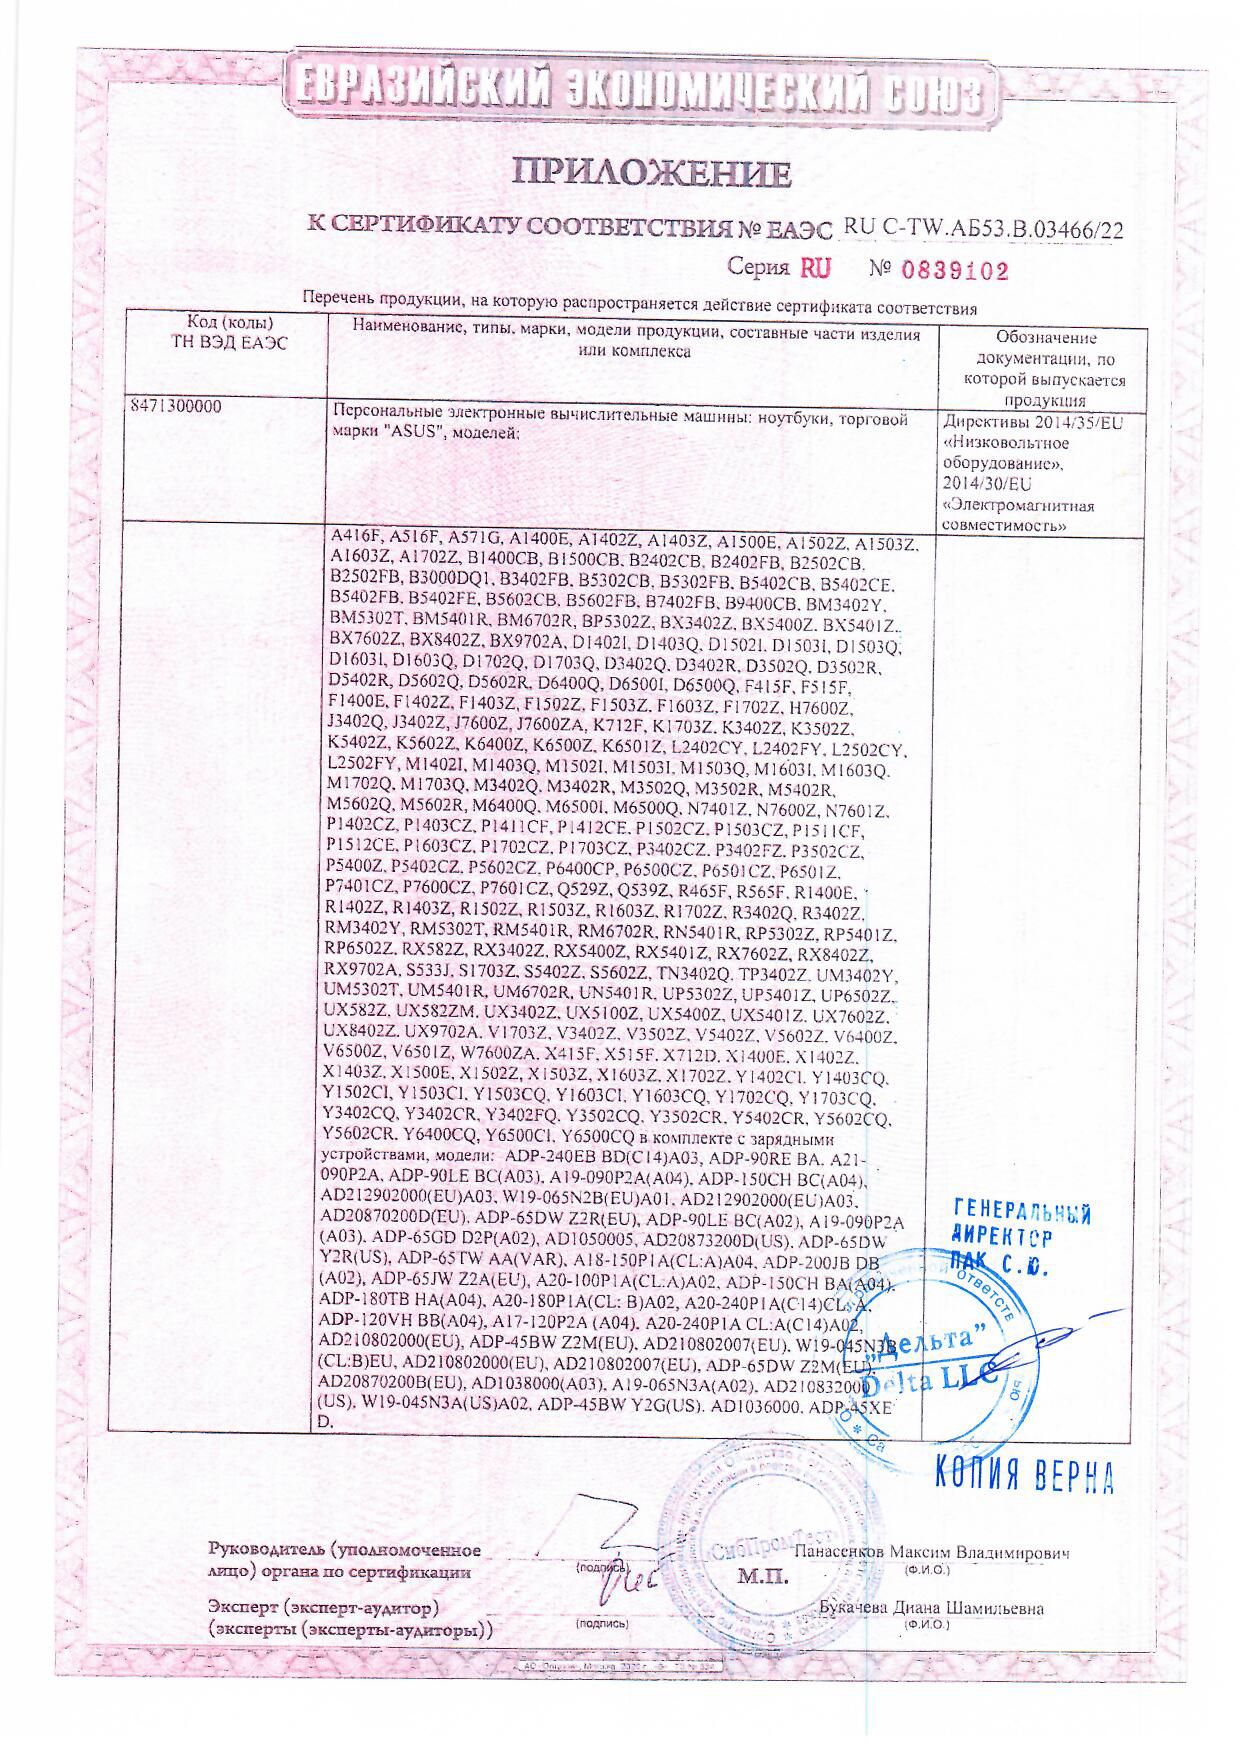 ЕВРАЗИЙСКИЙ ЭКОНОМИЧЕСКИЙ СОЮЗ
ПРИЛОЖЕНИЕ
К СЕРТИФИКАТУ СООТВЕТСТВИЯ № ЕАЭС RU C-TW.АБ53.В.03466/22
Серия RU № 0839102
Перечень продукции, на которую распространяется действие сертификата соответствия
Код (коды)
ТН ВЭД ЕАЭС
Наименование, типы, марки, модели продукции, составные части изделия
или комплекса
Обозначение
документации, по
которой выпускается
продукция
8471300000
Персональные электронные вычислительные машины: ноутбуки, торговой
марки "ASUS", моделей:
Директивы 2014/35/EU
«Низковольтное
оборудование»,
2014/30/EU
«Электромагнитная
совместимость»
A416F, A516F, A571G, A1400E, A1402Z, A1403Z, A1500E, A1502Z, A1503Z,
A1603Z, A1702Z, B1400CB, B1500CB, B2402CB, B2402FB, B2502CB,
B2502FB, B3000DQ1, B3402FB, B5302CB, B5302FB, B5402CB, B5402CE,
B5402FB, B5402FE, B5602CB, B5602FB, B7402FB, B9400CB, BM3402Y,
BM5302T, BM5401R, BM6702R, BP5302Z, BX3402Z, BX5400Z, BX5401Z,
BX7602Z, BX8402Z, BX9702A, D1402I, D1403Q, D1502I, D1503I, D1503Q,
D1603I, D1603Q, D1702Q, D1703Q, D3402Q, D3402R, D3502Q, D3502R,
D5402R, D5602Q, D5602R, D6400Q, D6500I, D6500Q, F415F, F515F,
F1400E, F1402Z, F1403Z, F1502Z, F1503Z, F1603Z, F1702Z, H7600Z,
J3402Q, J3402Z, J7600Z, J7600ZA, K712F, K1703Z, K3402Z, K3502Z,
K5402Z, K5602Z, K6400Z, K6500Z, K6501Z, L2402CY, L2402FY, L2502CY,
L2502FY, M1402I, M1403Q, M1502I, M1503I, M1503Q, M1603I, M1603Q,
M1702Q, M1703Q, M3402Q, M3402R, M3502Q, M3502R, M5402R,
M5602Q, M5602R, M6400Q, M6500I, M6500Q, N7401Z, N7600Z, N7601Z,
P1402CZ, P1403CZ, P1411CF, P1412CE, P1502CZ, P1503CZ, P1511CF,
P1512CE, P1603CZ, P1702CZ, P1703CZ, P3402CZ, P3402FZ, P3502CZ,
P5400Z, P5402CZ, P5602CZ, P6400CP, P6500CZ, P6501CZ, P6501Z,
P7401CZ, P7600CZ, P7601CZ, Q529Z, Q539Z, R465F, R565F, R1400E,
R1402Z, R1403Z, R1502Z, R1503Z, R1603Z, R1702Z, R3402Q, R3402Z,
RM3402Y, RM5302T, RM5401R, RM6702R, RN5401R, RP5302Z, RP5401Z,
RP6502Z, RX582Z, RX3402Z, RX5400Z, RX5401Z, RX7602Z, RX8402Z,
RX9702A, S533J, S1703Z, S5402Z, S5602Z, TN3402Q, TP3402Z, UM3402Y,
UM5302T, UM5401R, UM6702R, UN5401R, UP5302Z, UP5401Z, UP6502Z,
UX582Z, UX582ZM, UX3402Z, UX5100Z, UX5400Z, UX5401Z, UX7602Z,
UX8402Z, UX9702A, V1703Z, V3402Z, V3502Z, V5402Z, V5602Z, V6400Z,
V6500Z, V6501Z, W7600ZA, X415F, X515F, X712D, X1400E, X1402Z,
X1403Z, X1500E, X1502Z, X1503Z, X1603Z, X1702Z, Y1402CI, Y1403CQ,
Y1502CI, Y1503CI, Y1503CQ, Y1603CI, Y1603CQ, Y1702CQ, Y1703CQ,
Y3402CQ, Y3402CR, Y3402FQ, Y3502CQ, Y3502CR, Y5402CR, Y5602CQ,
Y5602CR, Y6400CQ, Y6500CI, Y6500CQ в комплекте с зарядными
устройствами, модели: ADP-240EB BD(C14)A03, ADP-90RE BA, A21-
090P2A, ADP-90LE BC(A03), A19-090P2A(A04), ADP-150CH BC(A04),
AD212902000(EU)A03, W19-065N2B(EU)A01, AD212902000(EU)A03,
AD20870200D(EU), ADP-65DW Z2R(EU), ADP-90LE BC(A02), A19-090P2A
(A03), ADP-65GD D2P(A02), AD1050005, AD20873200D(US), ADP-65DW
Y2R(US), ADP-65TW AA(VAR), A18-150P1A(CL:A)A04, ADP-200JB DB
(A02), ADP-65JW Z2A(EU), A20-100P1A(CL:A)A02, ADP-150CH BA(A04),
ADP-180TB HA(A04), A20-180P1A(CL: B)A02, A20-240P1A(C14)CL: A,
ADP-120VH BB(A04), A17-120P2A (A04), A20-240P1A CL:A(C14)A02,
AD210802000(EU), ADP-45BW Z2M(EU), AD210802007(EU), W19-045N3B
(CL:B)EU, AD210802000(EU), AD210802007(EU), ADP-65DW Z2M(EU),
AD20870200B(EU), AD1038000(A03), A19-065N3A(A02), AD210832000
(US), W19-045N3A(US)A02, ADP-45BW Y2G(US), AD1036000, ADP-45XE
D.
ГЕНЕРАЛЬНЫЙ
ДИРЕКТОР
ПАК С.Ю.
„Дельта”
Delta LLC
КОПИЯ ВЕРНА
Руководитель (уполномоченное
лицо) органа по сертификации
(подпись)
«СибПромТест»
М.П.
Панасенков Максим Владимирович
(Ф.И.О.)
Эксперт (эксперт-аудитор)
(эксперты (эксперты-аудиторы))
(подпись)
Букачева Диана Шамильевна
(Ф.И.О.)